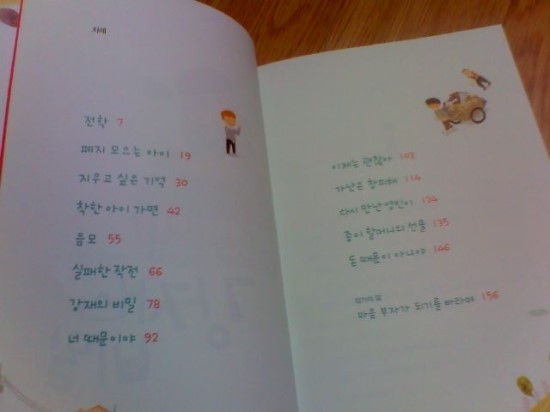 차례
전학 7
폐지 모으는 아이 19
지우고 싶은 기억 30
착한 아이 가면 42
음모 55
실패한 작전 66
강재의 비밀 78
너 때문이야 92
이제는 괜찮아 103
가난은 창피해 114
다시 만난 영진이 124
종이 할머니의 선물 135
돈 때문이 아니야 146
마음 부자가 되기를 바라며 156